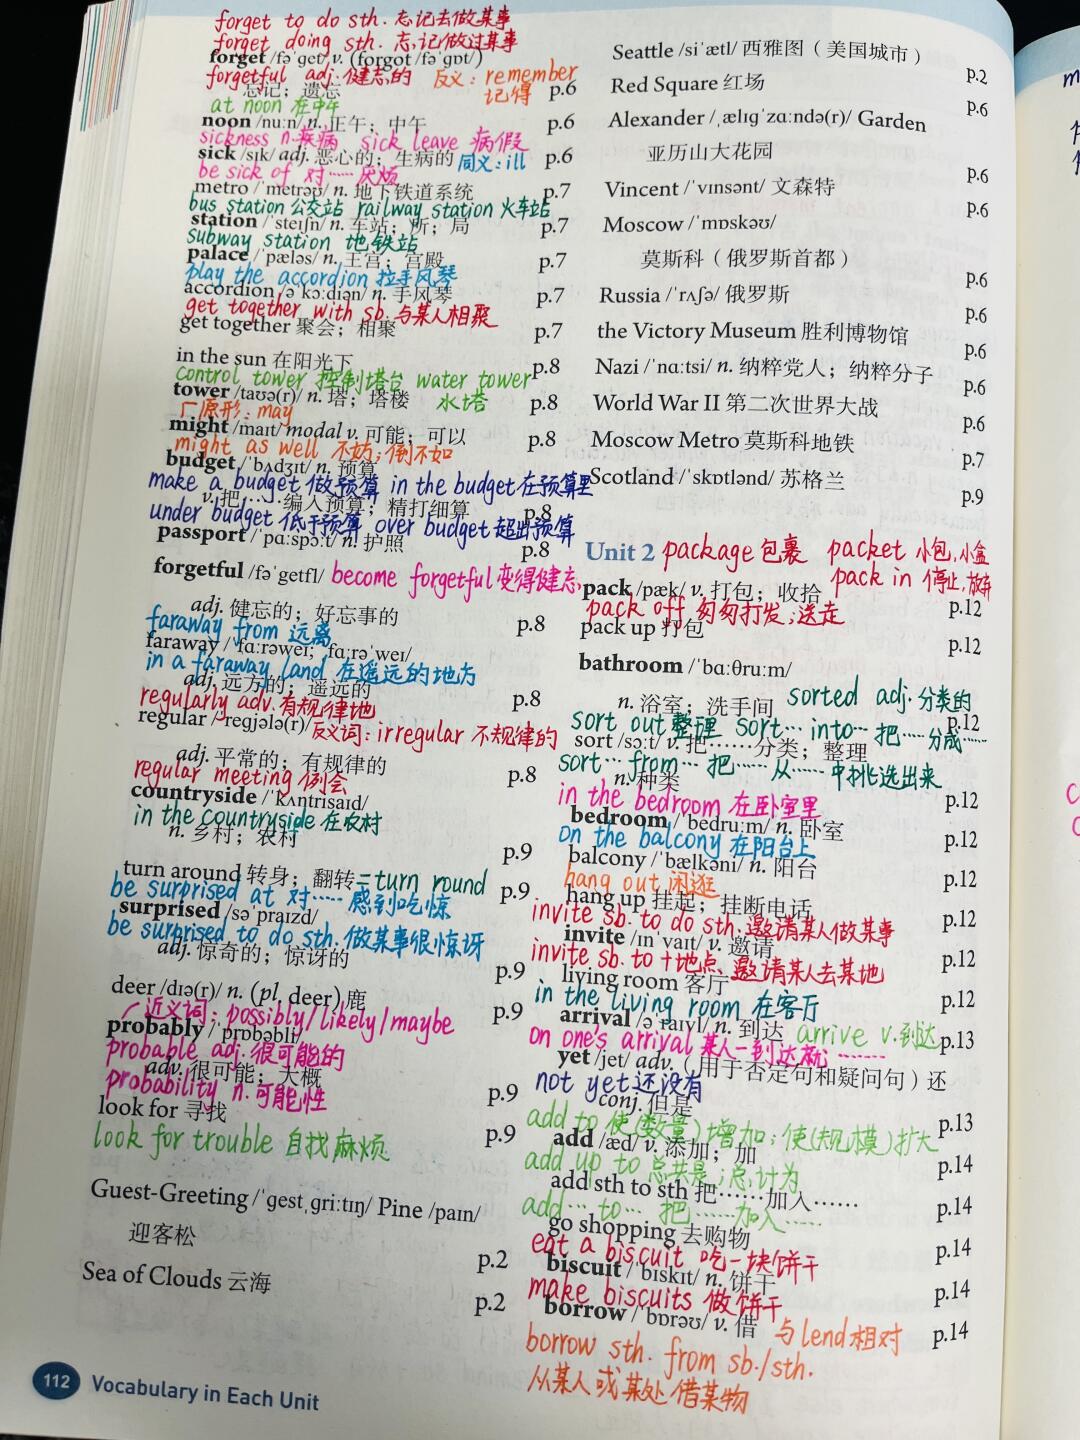 forget to do sth. 忘记去做某事
forget doing sth. 忘记做过某事
forget /fəˈɡet/ v. (forgot /fəˈɡɒt/)
forgetful adj. 健忘的 反义: remember 记得
忘记；遗忘 p.6
at noon 在中午
noon /nuːn/ n. 正午；中午 p.6
sickness n.疾病 sick leave 病假
sick /sɪk/ adj. 恶心的；生病的 同义: ill p.6
be sick of 对……厌烦
metro /ˈmetrəʊ/ n. 地下铁道系统 p.7
bus station 公交站 railway station 火车站
station /ˈsteɪʃn/ n. 车站；所；局 p.7
subway station 地铁站
palace /ˈpæləs/ n. 王宫；宫殿 p.7
play the accordion 拉手风琴
accordion /əˈkɔːdiən/ n. 手风琴 p.7
get together with sb. 与某人相聚
get together 聚会；相聚 p.7
in the sun 在阳光下 p.8
control tower 控制塔台 water tower 水塔
tower /taʊə(r)/ n. 塔；塔楼 p.8
原形: may
might /maɪt/ modal v. 可能；可以 p.8
might as well 不妨；倒不如
budget /ˈbʌdʒɪt/ n. 预算
make a budget 做预算 in the budget 在预算里
v. 把……编入预算；精打细算 p.8
under budget 低于预算 over budget 超出预算
passport /ˈpɑːspɔːt/ n. 护照 p.8
forgetful /fəˈɡetfl/ become forgetful 变得健忘
adj. 健忘的；好忘事的 p.8
faraway from 远离
faraway /ˈfɑːrəweɪ; ˌfɑːrəˈweɪ/
in a faraway land 在遥远的地方
adj. 远方的；遥远的 p.8
regularly adv. 有规律地
regular /ˈreɡjələ(r)/ 反义词: irregular 不规律的
adj. 平常的；有规律的 p.8
regular meeting 例会
countryside /ˈkʌntrisaɪd/
in the countryside 在农村
n. 乡村；农村 p.9
turn around 转身；翻转 = turn round p.9
be surprised at 对……感到吃惊
surprised /səˈpraɪzd/
be surprised to do sth. 做某事很惊讶
adj. 惊奇的；惊讶的 p.9
deer /dɪə(r)/ n. (pl. deer) 鹿 p.9
近义词: possibly/likely/maybe
probably /ˈprɒbəbli/
probable adj. 很可能的
adv. 很可能；大概 p.9
probability n. 可能性
look for 寻找 p.9
look for trouble 自找麻烦
Guest-Greeting /ˈɡestˌɡriːtɪŋ/ Pine /paɪn/
迎客松 p.2
Sea of Clouds 云海 p.2
112 Vocabulary in Each Unit
Seattle /siˈætl/ 西雅图（美国城市） p.2
Red Square 红场 p.6
Alexander /ˌælɪɡˈzɑːndə(r)/ Garden
亚历山大花园 p.6
Vincent /ˈvɪnsənt/ 文森特 p.6
Moscow /ˈmɒskəʊ/
莫斯科（俄罗斯首都） p.6
Russia /ˈrʌʃə/ 俄罗斯 p.6
the Victory Museum 胜利博物馆 p.6
Nazi /ˈnɑːtsi/ n. 纳粹党人；纳粹分子 p.6
World War II 第二次世界大战 p.6
Moscow Metro 莫斯科地铁 p.7
Scotland /ˈskɒtlənd/ 苏格兰 p.9
Unit 2 package 包裹 packet 小包,小盒
pack /pæk/ v. 打包；收拾 pack in 停止,放弃 p.12
pack off 匆匆打发；送走
pack up 打包 p.12
bathroom /ˈbɑːθruːm/
n. 浴室；洗手间 sorted adj. 分类的 p.12
sort out 整理 sort…into… 把……分成……
sort /sɔːt/ v. 把……分类；整理
sort…from… 把……从……中挑选出来
n. 种类 p.12
in the bedroom 在卧室里
bedroom /ˈbedruːm/ n. 卧室 p.12
on the balcony 在阳台上
balcony /ˈbælkəni/ n. 阳台 p.12
hang out 闲逛
hang up 挂起；挂断电话 p.12
invite sb. to do sth. 邀请某人做某事
invite /ɪnˈvaɪt/ v. 邀请 p.12
invite sb. to + 地点 邀请某人去某地
living room 客厅 p.12
in the living room 在客厅
arrival /əˈraɪvl/ n. 到达 arrive v. 到达 p.13
on one's arrival 某人一到达就……
yet /jet/ adv.（用于否定句和疑问句）还
not yet 还没有
conj. 但是 p.13
add to 使(数量)增加；使(规模)扩大
add /æd/ v. 添加；加 p.14
add up to 总共是；总计为
add sth to sth 把……加入…… p.14
add…to… 把……加入……
go shopping 去购物 p.14
eat a biscuit 吃一块饼干
biscuit /ˈbɪskɪt/ n. 饼干 p.14
make biscuits 做饼干
borrow /ˈbɒrəʊ/ v. 借 与lend相对 p.14
borrow sth. from sb./sth.
从某人或某处借某物